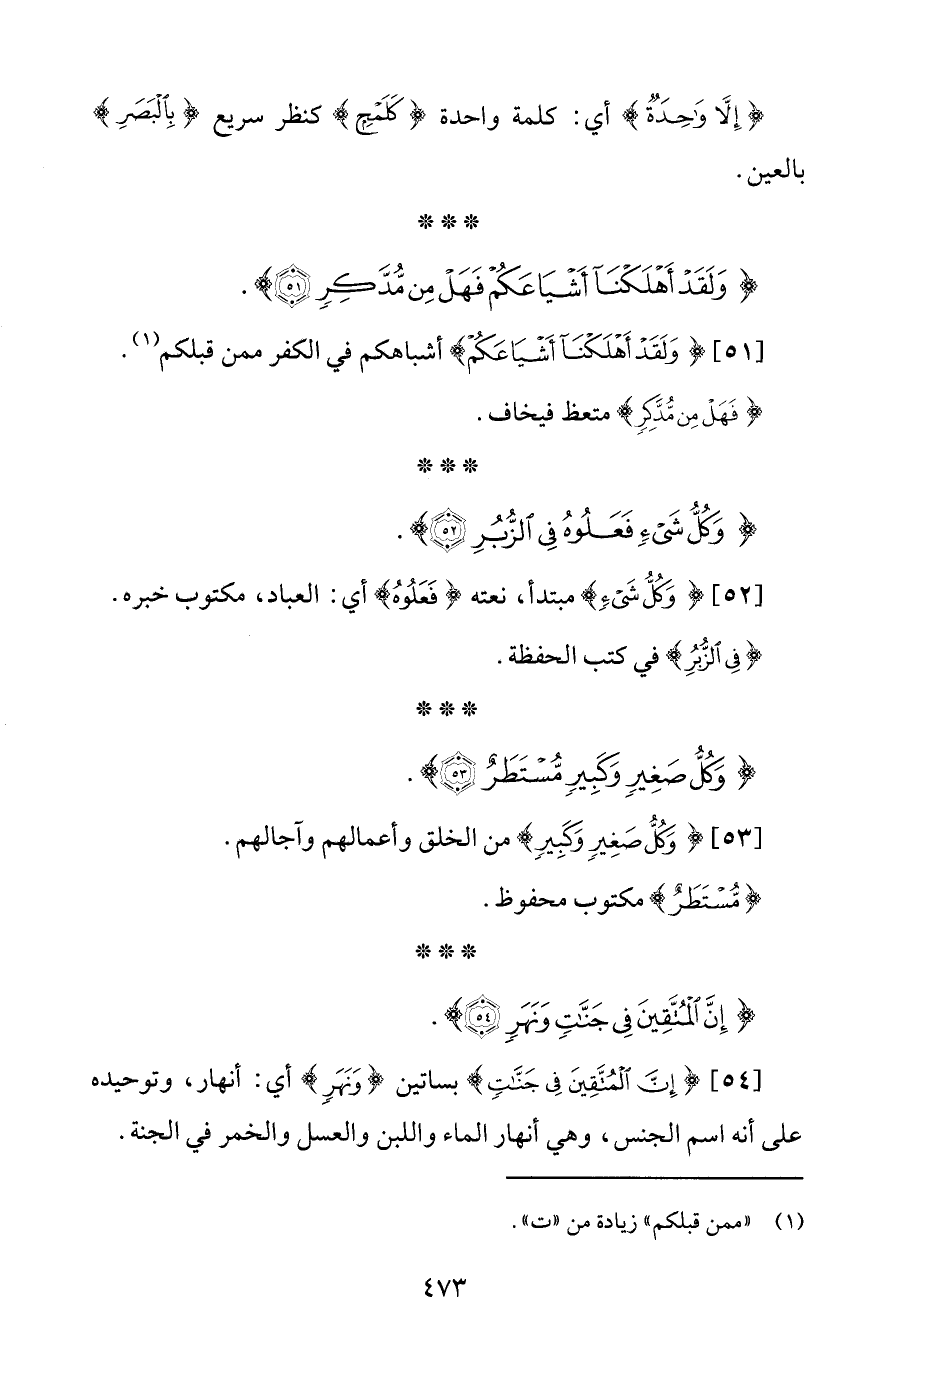 ﴿ إِلَّا وَٰحِدَةٌ ﴾ أي: كلمة واحدة ﴿ كَلَمْحٍ ﴾ كنظر سريع ﴿ بِٱلْبَصَرِ ﴾
بالعين .
* * *
﴿ وَلَقَدْ أَهْلَكْنَآ أَشْيَاعَكُمْ فَهَلْ مِن مُّدَّكِرٍ ٥١ ﴾ .
[٥١] ﴿ وَلَقَدْ أَهْلَكْنَآ أَشْيَاعَكُمْ ﴾ أشباهكم في الكفر ممن قبلكم(١) .
﴿ فَهَلْ مِن مُّدَّكِرٍ ﴾ متعظ فيخاف .
* * *
﴿ وَكُلُّ شَىْءٍ فَعَلُوهُ فِى ٱلزُّبُرِ ٥٢ ﴾ .
[٥٢] ﴿ وَكُلُّ شَىْءٍ ﴾ مبتدأ، نعته ﴿ فَعَلُوهُ ﴾ أي: العباد، مكتوب خبره .
﴿ فِى ٱلزُّبُرِ ﴾ في كتب الحفظة .
* * *
﴿ وَكُلُّ صَغِيرٍ وَكَبِيرٍ مُّسْتَطَرٌ ٥٣ ﴾ .
[٥٣] ﴿ وَكُلُّ صَغِيرٍ وَكَبِيرٍ ﴾ من الخلق وأعمالهم وآجالهم .
﴿ مُّسْتَطَرٌ ﴾ مكتوب محفوظ .
* * *
﴿ إِنَّ ٱلْمُتَّقِينَ فِى جَنَّٰتٍ وَنَهَرٍ ٥٤ ﴾ .
[٥٤] ﴿ إِنَّ ٱلْمُتَّقِينَ فِى جَنَّٰتٍ ﴾ بساتين ﴿ وَنَهَرٍ ﴾ أي: أنهار، وتوحيده
على أنه اسم الجنس، وهي أنهار الماء واللبن والعسل والخمر في الجنة .
(١) «ممن قبلكم» زيادة من «ت» .
٤٧٣